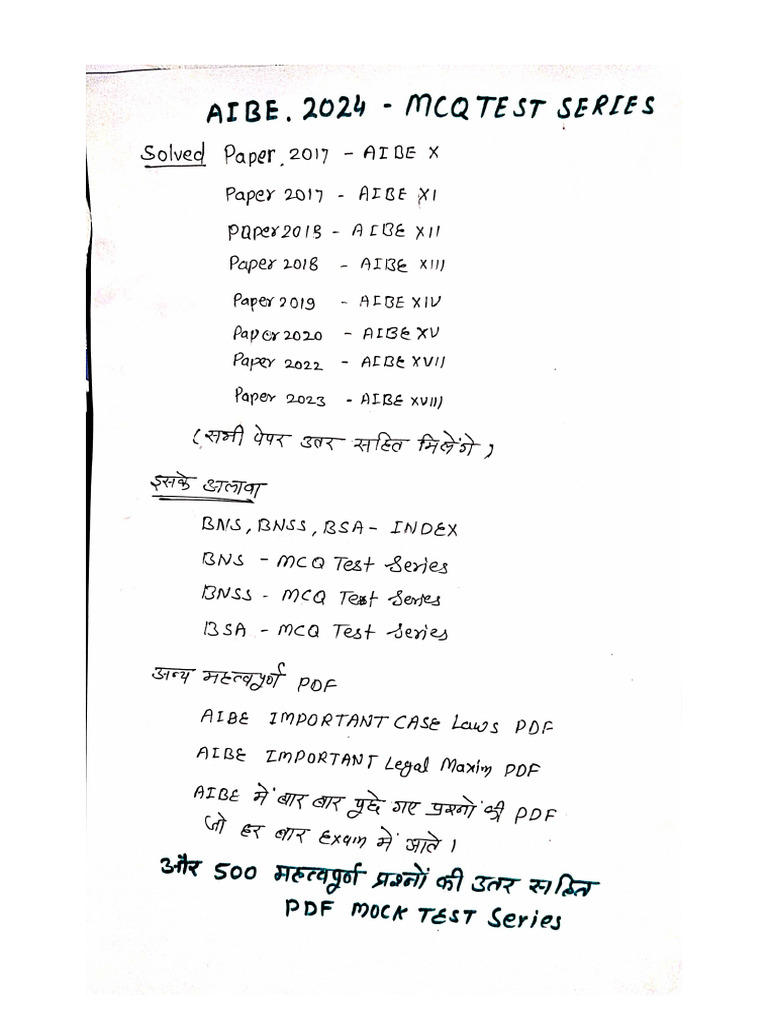 AIBE. 2024 - MCQ TEST SERIES
Solved Paper. 2017 - AIBE X
Paper 2017 - AIBE XI
Paper 2018 - AIBE XII
Paper 2018 - AIBE XIII
Paper 2019 - AIBE XIV
Paper 2020 - AIBE XV
Paper 2022 - AIBE XVII
Paper 2023 - AIBE XVIII
(सभी पेपर उतर सहित मिलेंगे)
इसके अलावा
BNS, BNSS, BSA - INDEX
BNS - MCQ Test Series
BNSS - MCQ Test Series
BSA - MCQ Test Series
अन्य महत्वपूर्ण PDF
AIBE IMPORTANT CASE Laws PDF
AIBE IMPORTANT Legal Maxim PDF
AIBE में बार बार पुछे गए प्रश्नों की PDF
जो हर बार Exam में आते।
और 500 महत्वपूर्ण प्रश्नों की उतर सहित
PDF MOCK TEST Series